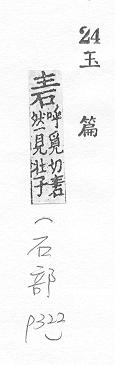 24玉篇
砉
呼覓切砉
然一見莊子
(石部
P322)